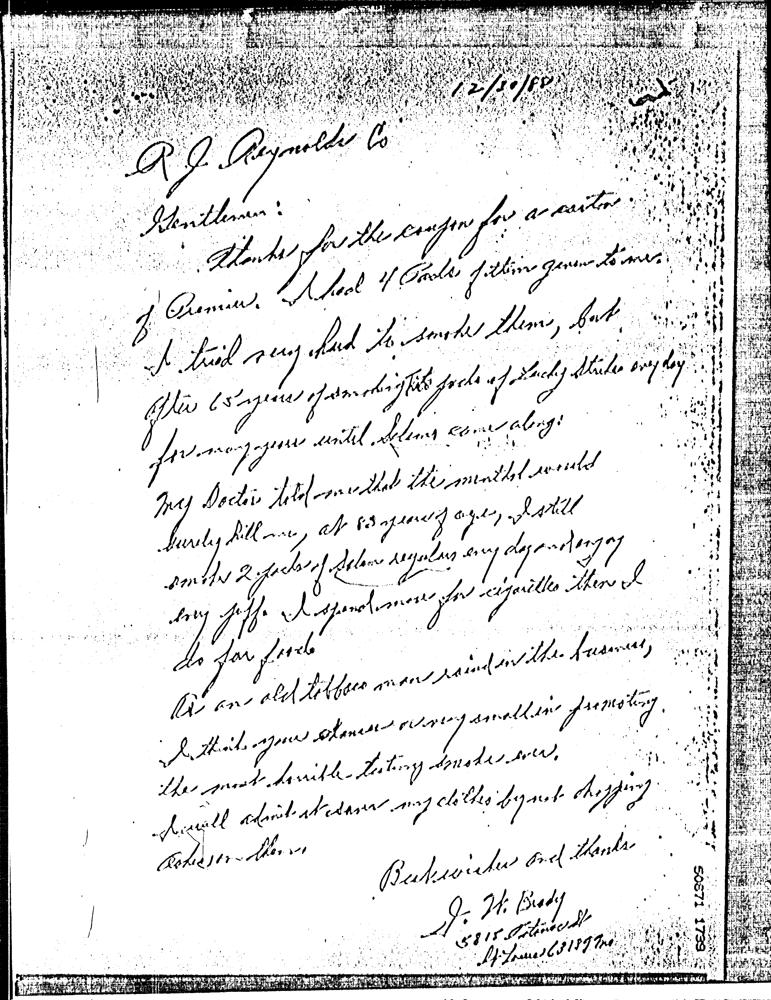 12/30/88
R J. Reynolds Co
Gentlemen:
Thanks for the coupon for a carton
of Premier. I had 4 Packs of them given to me.
I tried very hard to smoke them, but
after 65 years of smoking packs of Lucky Strike every day
for many years until Salems came along:
My Doctor told me that the menthol would
surely kill me, at 83 years of age, I still
smoke 2 packs of Salem regulars every day and enjoy
every puff. I spend more for cigarettes then I
do for food.
As an old tobacco man raised in the business,
I think your are very small in promoting
the most horrible tasting smoke ever.
I will admit it saves my clothes by not dropping
ashes on them.
Best wishes and thanks
J. W. Brody
5815 St
St Louis 63109 Mo
50871 1799